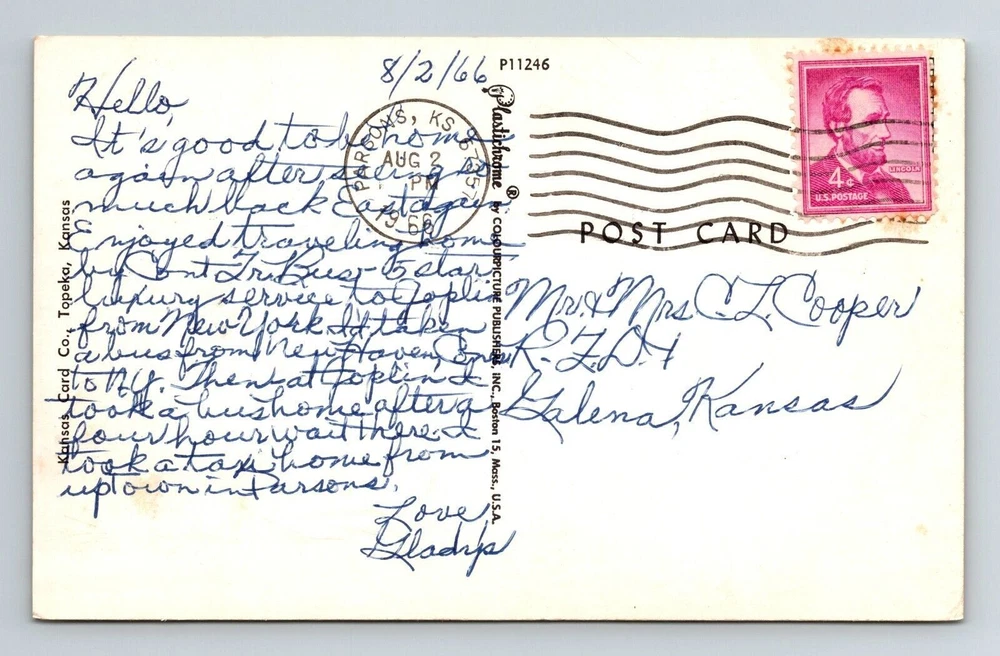 8/2/66
P11246
Hello,
It's good to be home
again after seeing so
much back East again.
Enjoyed traveling home
by Cont Tr. Bus - 5 star
luxury service to Joplin
from New York I'd taken
a bus from New Haven, Conn
to N.Y. Then at Joplin I
took a bus home after a
four hour wait there. I
took a taxi home from
uptown in Parsons.
Love,
Gladys
PARSONS, KS 67357
AUG 2
PM
1966
Kansas Card Co., Topeka, Kansas
Plastichrome ® by COLOURPICTURE PUBLISHERS, INC., Boston 15, Mass., U.S.A.
LINCOLN
4¢
U.S. POSTAGE
POST CARD
Mr. & Mrs C. L. Cooper
R.F.D. 1
Galena, Kansas